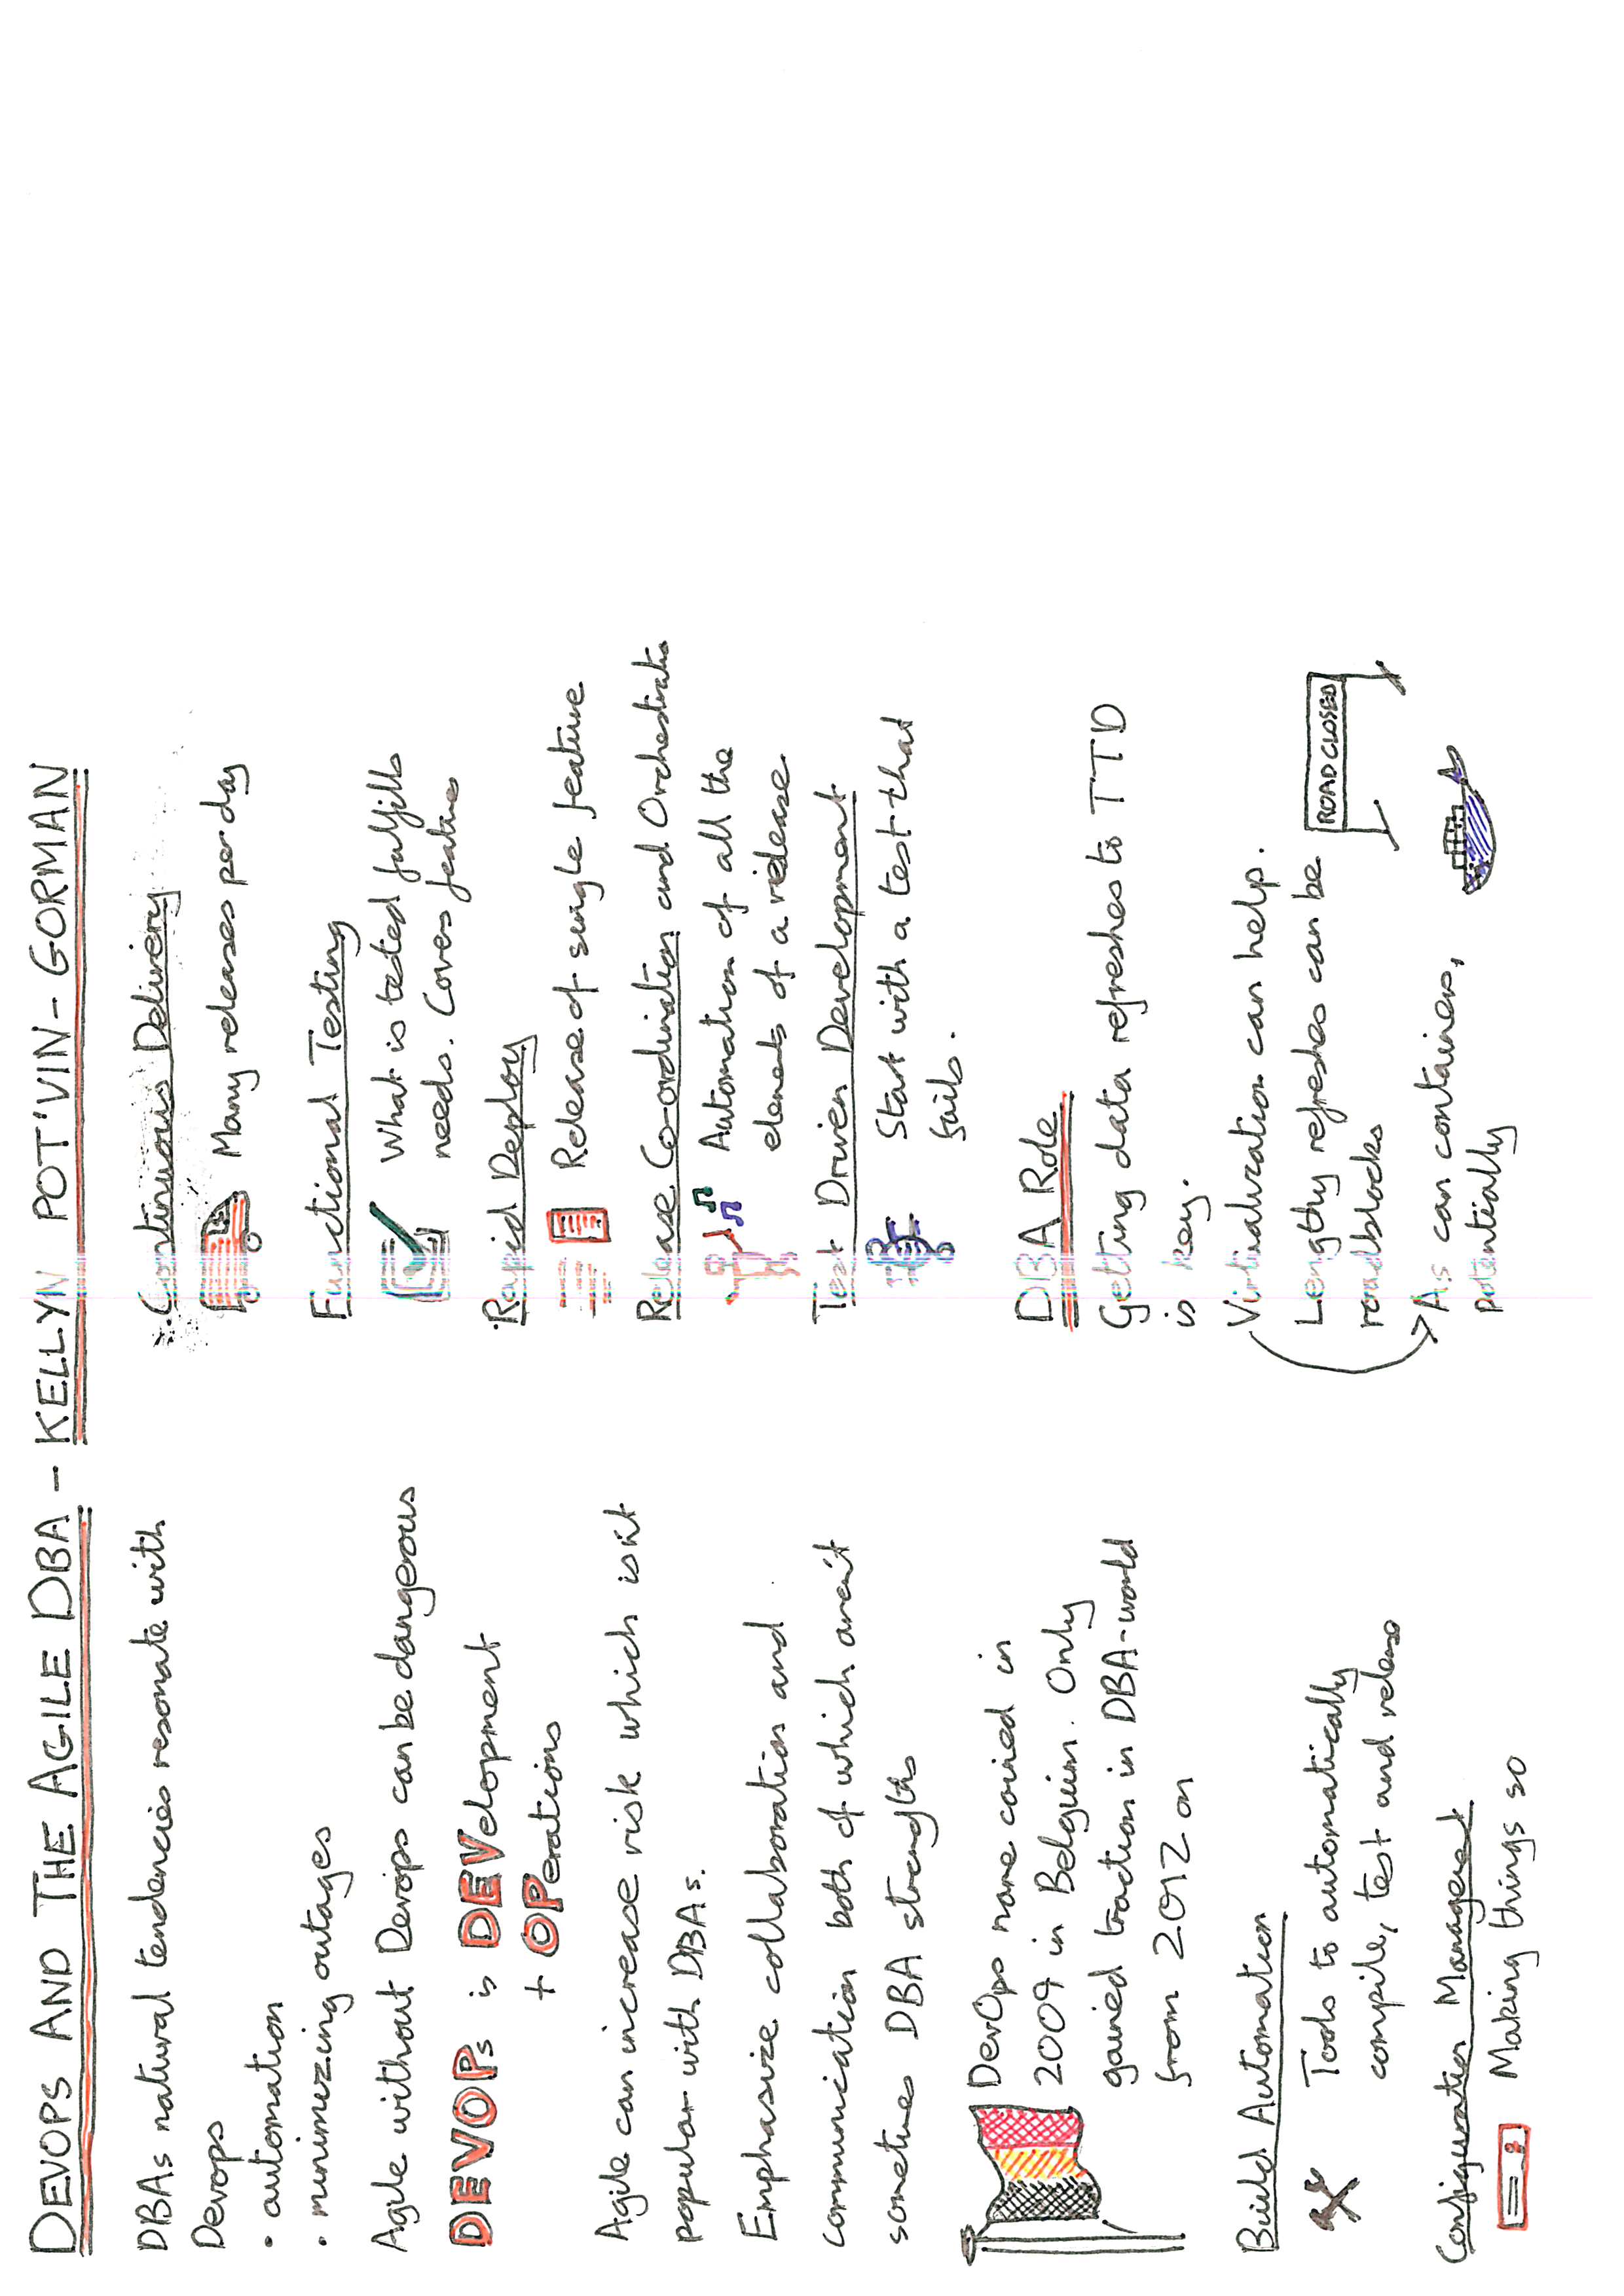 DEVOPS AND THE AGILE DBA - KELLYN POT'VIN-GORMAN
DBAs natural tendencies resonate with
Devops
• automation
• minimizing outages
Agile without Devops can be dangerous
DEVOPs is DEVelopment
+ OPerations
Agile can increase risk which isn't
popular with DBAs.
Emphasize collaboration and
communication both of which aren't
sometimes DBA strengths
DevOps name coined in
2009 in Belguim. Only
gained traction in DBA-world
from 2012 on
Build Automation
Tools to automatically
compile, test and release
Configuration Management
Making things so
Continuous Delivery
Many releases per day
Functional Testing
What is tested fulfills
needs. Covers features
Rapid Deploy
Release of single feature
Release Co-ordination and Orchestratio
Automation of all the
elements of a release
Test Driven Development
Start with a test that
fails.
DBA Role
Getting data refreshes to TTD
is key.
Virtualization can help.
Lengthy refreshes can be
roadblocks
ROAD CLOSED
As can containers,
potentially